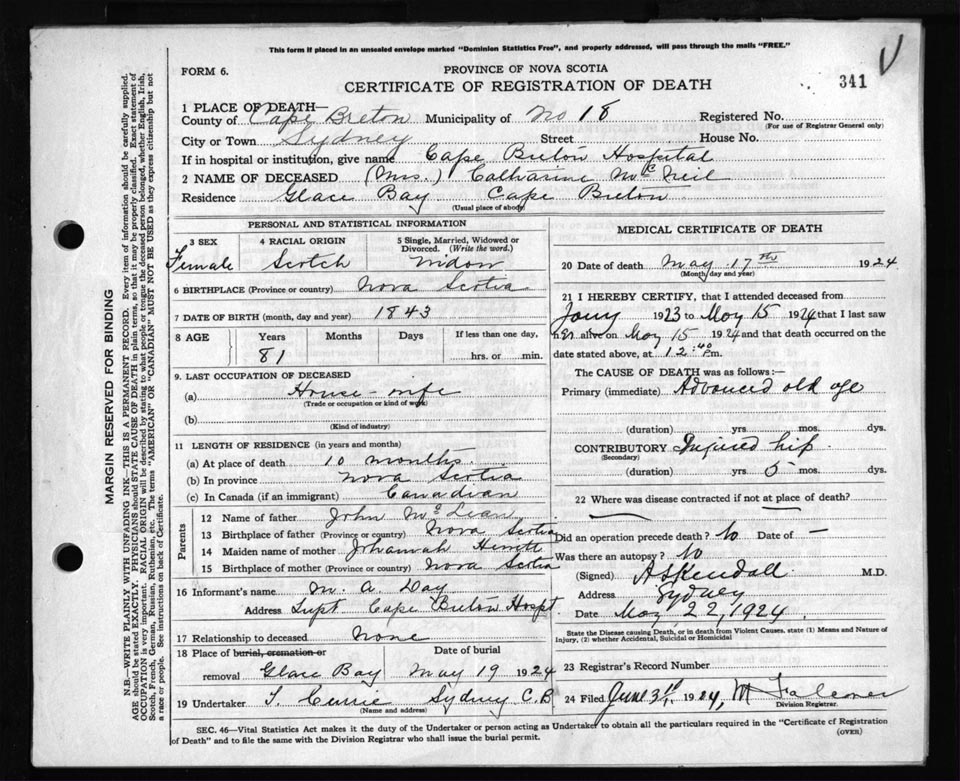 This form if placed in an unsealed envelope marked "Dominion Statistics Free", and properly addressed, will pass through the mails "FREE."
FORM 6.
PROVINCE OF NOVA SCOTIA
CERTIFICATE OF REGISTRATION OF DEATH
341
1 PLACE OF DEATH—
County of Cape Breton Municipality of No 18 Registered No.
(For use of Registrar General only)
City or Town Sydney Street House No.
If in hospital or institution, give name Cape Breton Hospital
2 NAME OF DECEASED (Mrs.) Catharine McNeil
Residence Glace Bay Cape Breton
(Usual place of abode)
PERSONAL AND STATISTICAL INFORMATION
3 SEX 4 RACIAL ORIGIN 5 Single, Married, Widowed or Divorced. (Write the word.)
Female Scotch Widow
6 BIRTHPLACE (Province or country) Nova Scotia
7 DATE OF BIRTH (month, day and year) 1843
8 AGE Years Months Days If less than one day,
81 hrs. or min.
9. LAST OCCUPATION OF DECEASED
(a) House-wife
(Trade or occupation or kind of work)
(b)
(Kind of industry)
11 LENGTH OF RESIDENCE (in years and months)
(a) At place of death 10 months.
(b) In province Nova Scotia
(c) In Canada (if an immigrant) Canadian
Parents
12 Name of father John McLean
13 Birthplace of father (Province or country) Nova Scotia
14 Maiden name of mother Johannah
15 Birthplace of mother (Province or country) Nova Scotia
16 Informant's name M. A. Day
Address Supt. Cape Breton Hospt.
17 Relationship to deceased None
18 Place of burial, cremation or Date of burial
removal Glace Bay May 19 1924
19 Undertaker T. Currie Sydney C.B
(Name and address)
MEDICAL CERTIFICATE OF DEATH
20 Date of death May 17th 1924
(Month, day and year)
21 I HEREBY CERTIFY, that I attended deceased from
1923 to May 15 1924 that I last saw
her alive on May 15 1924 and that death occurred on the
date stated above, at 12:40 Pm.
The CAUSE OF DEATH was as follows:—
Primary (immediate) Advanced old age
(duration) yrs. mos. dys.
CONTRIBUTORY Injured hip.
(Secondary)
(duration) yrs 5 mos. dys.
22 Where was disease contracted if not at place of death?
Did an operation precede death? No Date of —
Was there an autopsy? No
(Signed) A S Kendall M.D.
Address Sydney
Date May 22, 1924
State the Disease causing Death, or in death from Violent Causes, state (1) Means and Nature of
Injury, (2) whether Accidental, Suicidal or Homicidal
23 Registrar's Record Number
24 Filed June 3rd, 1924, M Falconer
Division Registrar.
SEC. 46—Vital Statistics Act makes it the duty of the Undertaker or person acting as Undertaker to obtain all the particulars required in the "Certificate of Registration
of Death" and to file the same with the Division Registrar who shall issue the burial permit.
(OVER)
MARGIN RESERVED FOR BINDING
N.B.—WRITE PLAINLY WITH UNFADING INK—THIS IS A PERMANENT RECORD. Every item of information should be carefully supplied.
AGE should be stated EXACTLY. PHYSICIANS should STATE CAUSE OF DEATH in plain terms, so that it may be properly classified. Exact statement of
OCCUPATION is very important. RACIAL ORIGIN will be described by stating to what people or tongue the deceased person belonged, whether English, Irish,
Scotch, French, German, Russian, Ruthenian, etc. The terms "AMERICAN" or "CANADIAN" MUST NOT BE USED as they express citizenship but not
a race or people. See instructions on back of Certificate.